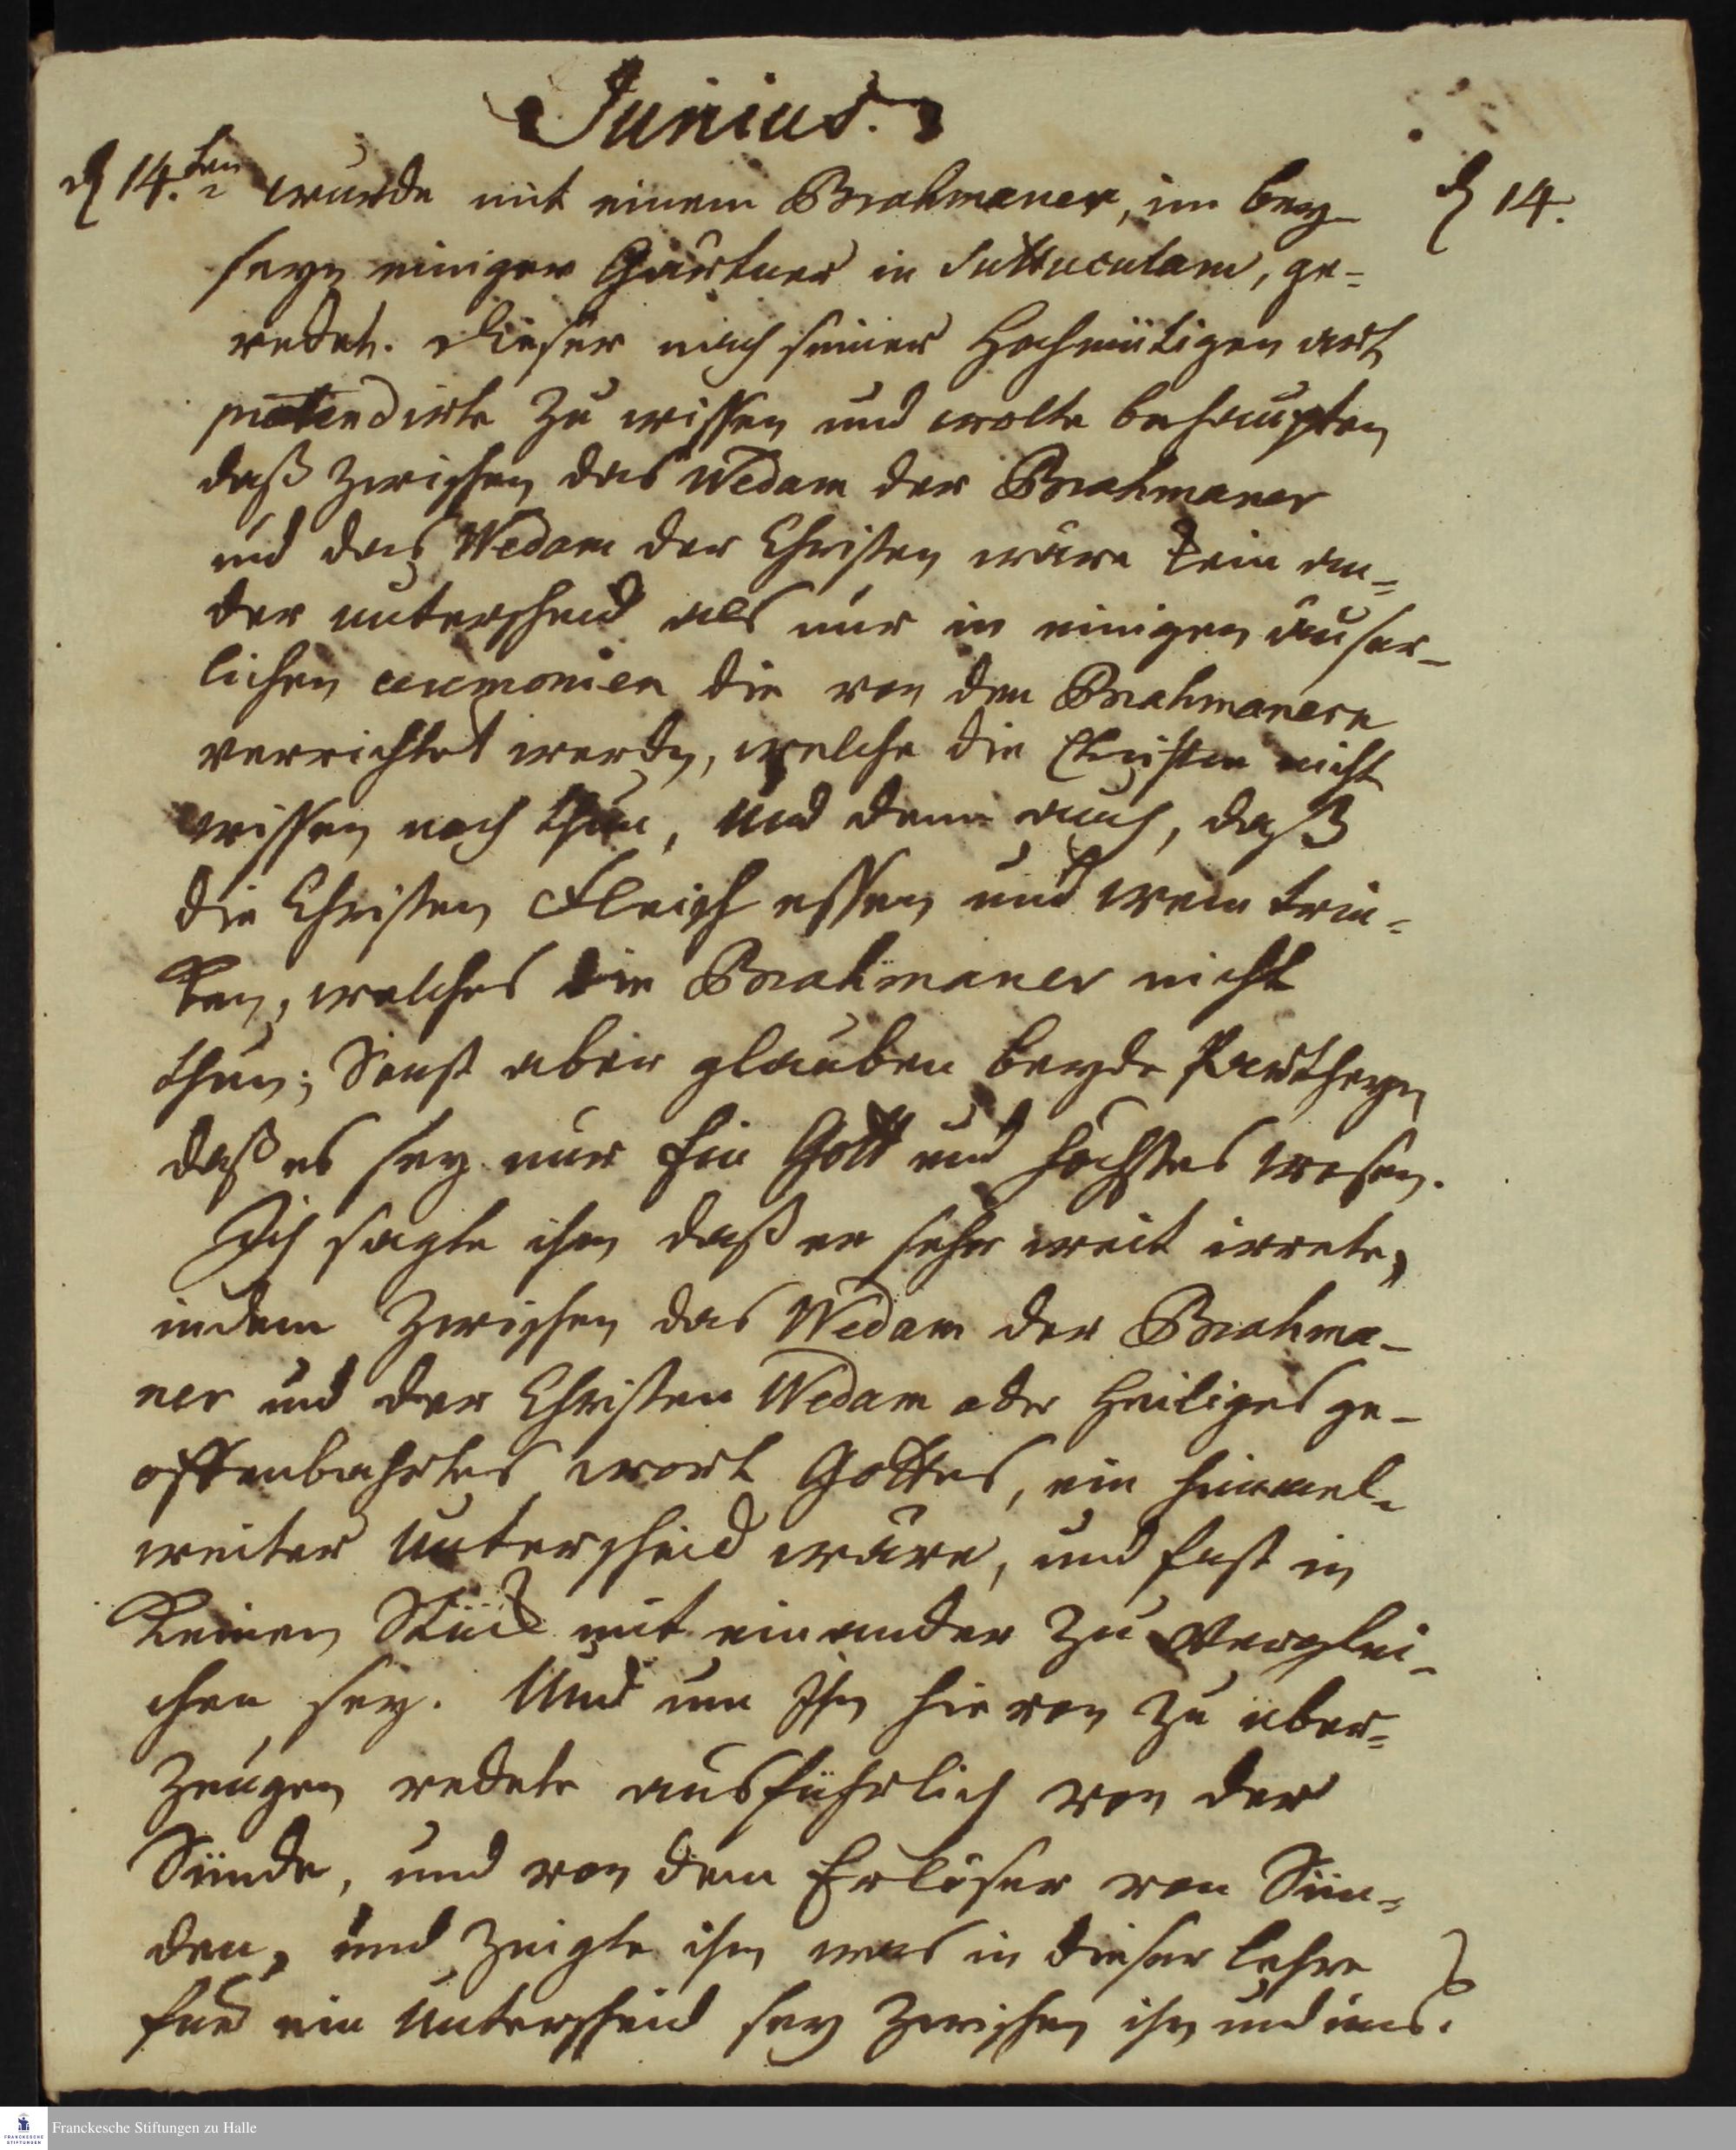 Junius.
d 14.ten wurde mit einem Brahmaner, im bey-
d 14.
seyn einiger Gärtner in Suttucutam, ge=
redet. Dieser nach seiner Hochmütigen art
prætendirte zu wissen und wolte behaupten
daß zwischen das Wedam der Brahmaner
und das Wedam der Christen wäre kein an=
der unterscheid als nur in einigen äuser-
lichen ceremonien die von den Brahmanern
verrichtet werden, welche die Christen nicht
wissen noch thun, und denn auch, daß
die Christen Fleisch essen und wein trin=
ken, welches die Brahmaner nicht
thun; Sonst aber glauben beyde Partheyen
daß es sey nur Ein Gott und höchstes wesen.
Ich sagte ihm daß er sehr weit irrete,
indem zwischen das Wedam der Brahma-
ner und der Christen Wedam oder Heiliges ge-
offenbahrtes wort Gottes, ein himmel=
weiter Unterscheid wäre, und fast in
keinen Stück mit einander zu verglei-
chen sey. Und um Ihn hievon zu über=
zeugen redete ausführlich von der
Sünde, und von dem Erlöser von Sün=
den, und zeigte ihm was in dieser lehre
für ein Unterscheid sey zwischen ihn und uns.
Franckesche Stiftungen zu Halle